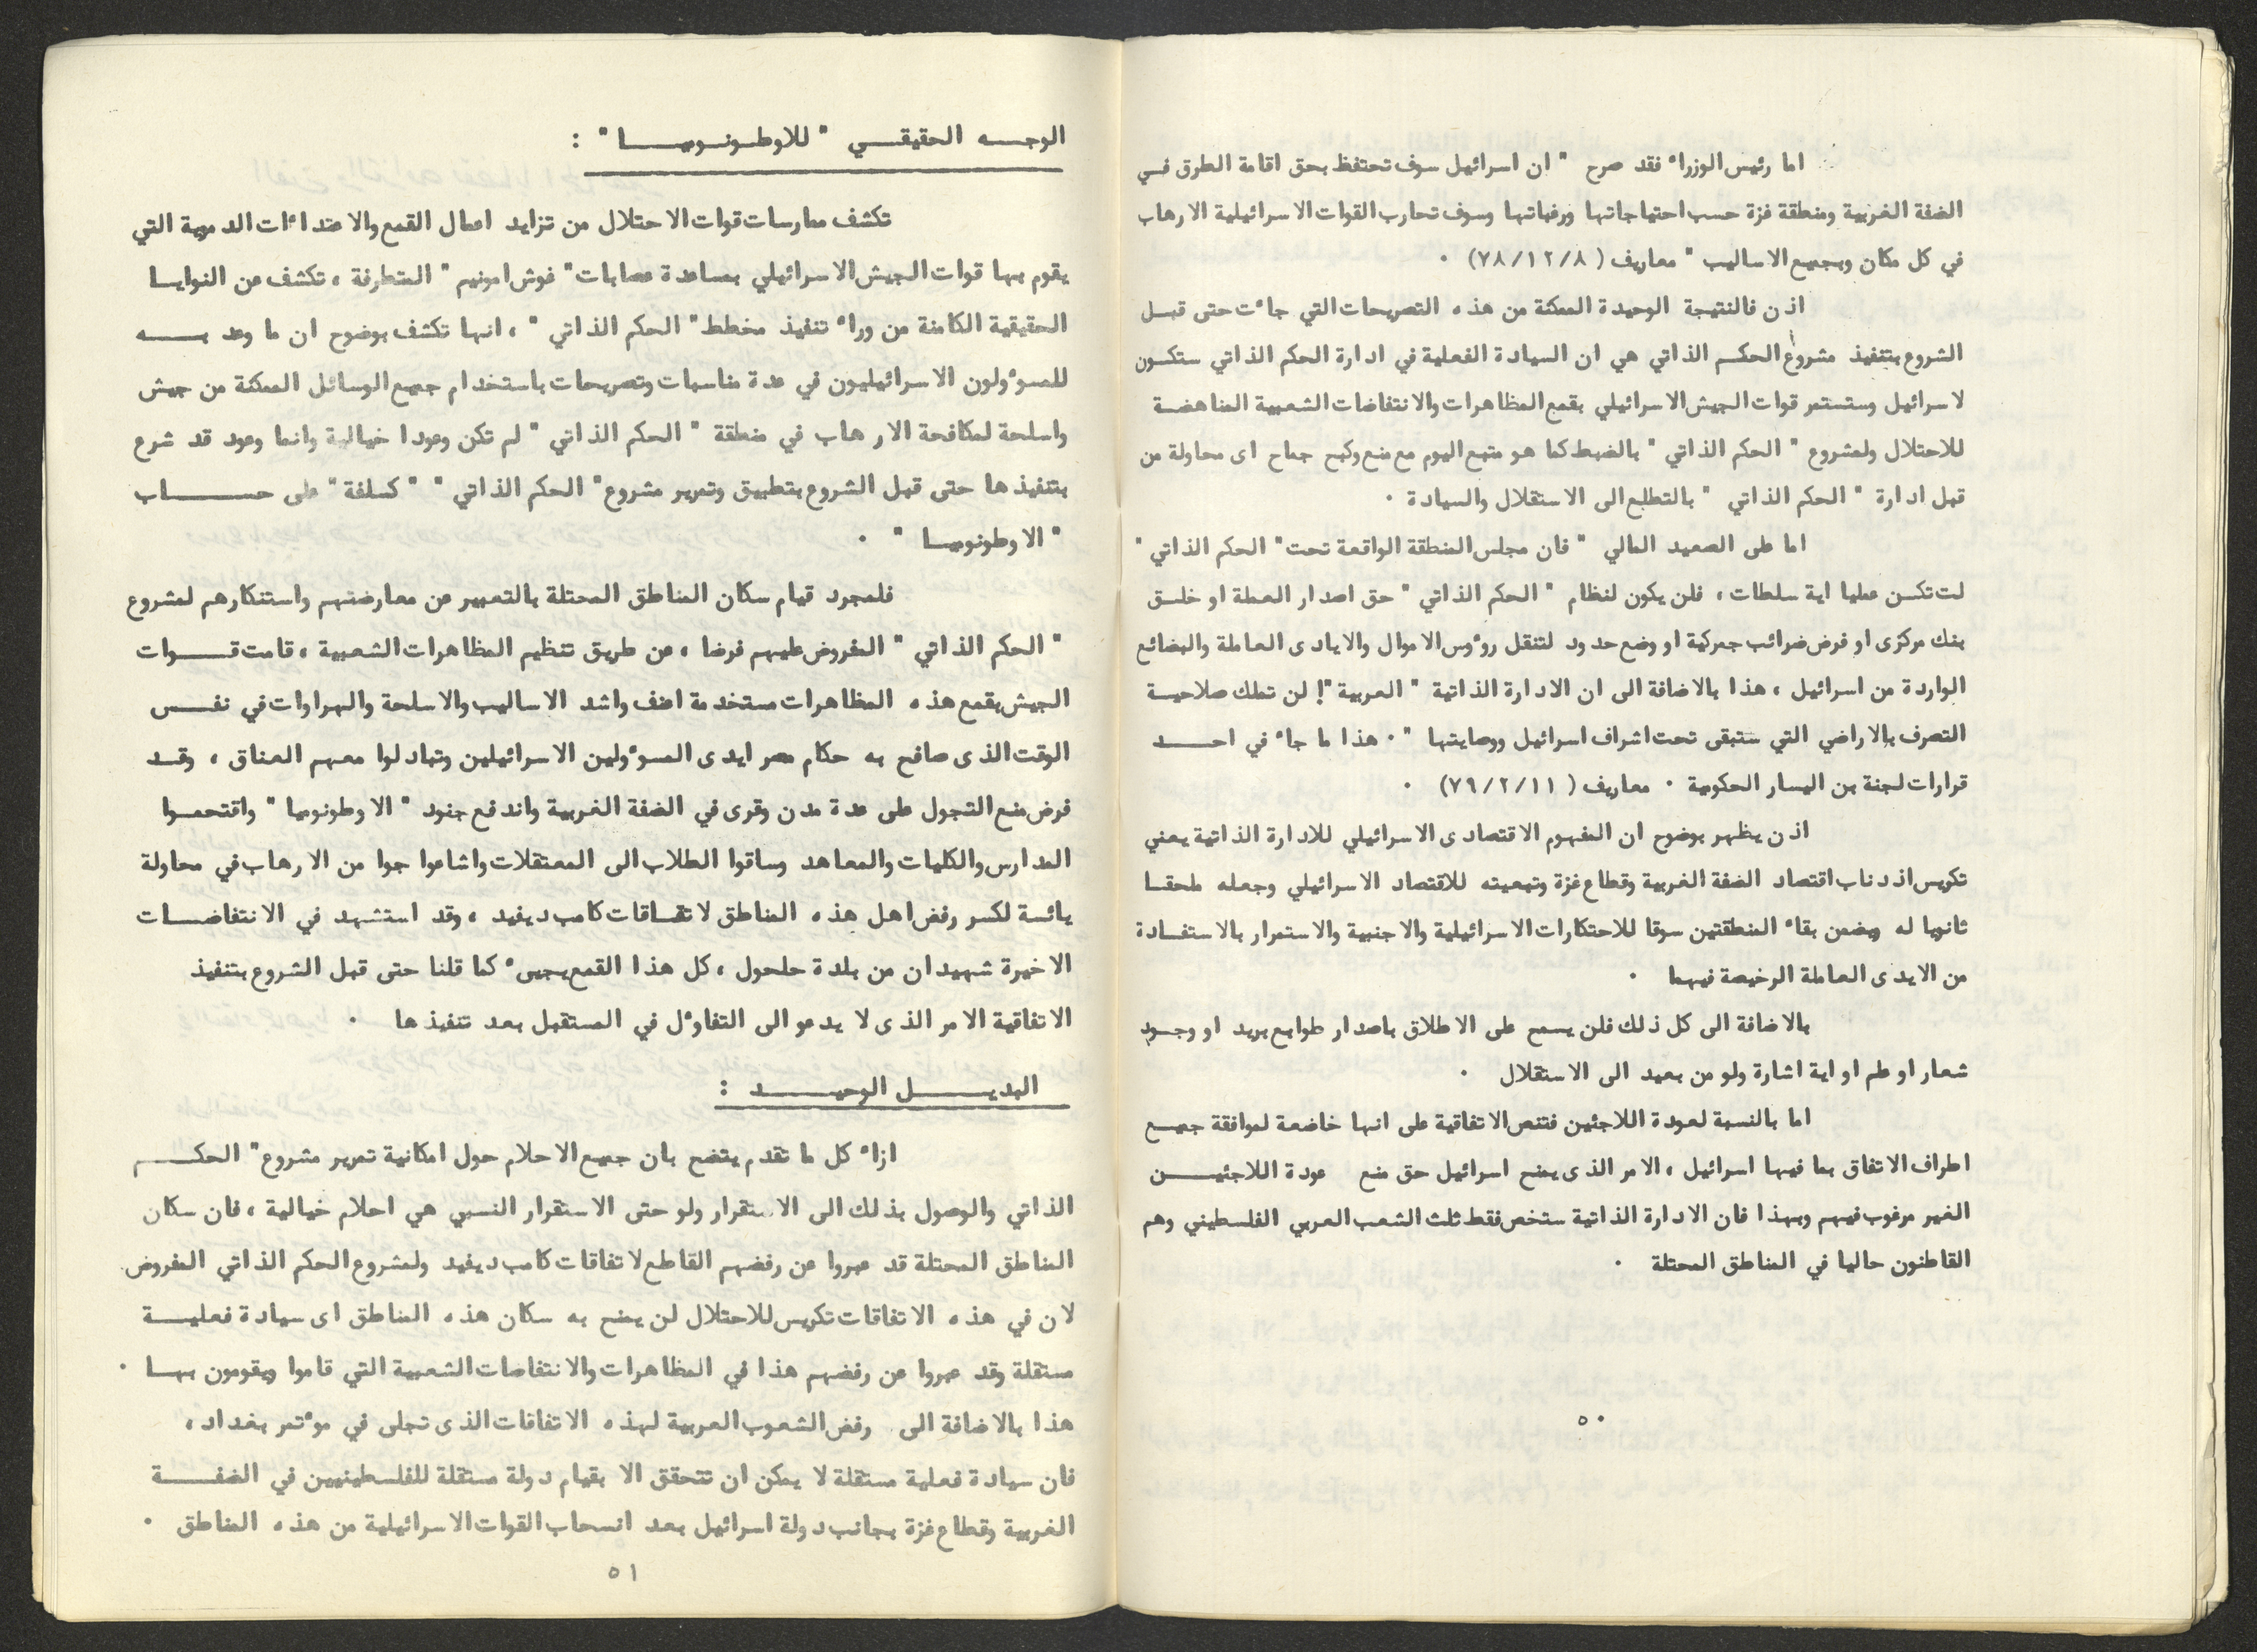 اما رئيس الوزراء فقد صرح " ان اسرائيل سوف تحتفظ بحق اقامة الطرق في
الضفة الغربية ومنطقة غزة حسب احتياجاتها ورغباتها وسوف تحارب القوات الاسرائيلية الارهاب
في كل مكان وبجميع الاساليب " معاريف ( ٧٨/١٢/٨) ٠
اذن فالنتيجة الوحيدة الممكنة من هذه التصريحات التي جاءت حتى قبل
الشروع بتنفيذ مشروع الحكم الذاتي هي ان السيادة الفعلية في ادارة الحكم الذاتي ستكون
لاسرائيل وستستمر قوات الجيش الاسرائيلي بقمع المظاهرات والانتفاضات الشعبية المناهضة
للاحتلال ولمشروع " الحكم الذاتي " بالضبط كما هو متبع اليوم مع منع وكبح جماح اى محاولة من
قبل ادارة " الحكم الذاتي " بالتطلع الى الاستقلال والسيادة ٠
اما على الصعيد المالي " فان مجلس المنطقة الواقعة تحت " الحكم الذاتي "
لت تكن عمليا اية سلطات ، فلن يكون لنظام " الحكم الذاتي " حق اصدار العملة او خلق
بنك مركزى او فرض ضرائب جمركية او وضع حدود لتنقل روءوس الاموال والايادى العاملة والبضائع
الواردة من اسرائيل ، هذا بالاضافة الى ان الادارة الذاتية " العربية "! لن تملك صلاحية
التصرف بالاراضي التي ستبقى تحت اشراف اسرائيل ووصايتها " ٠ هذا ما جاء في احد
قرارات لجنة بن اليسار الحكومية ٠ معاريف ( ٧٩/٢/١١) ٠
اذن يظهر بوضوح ان المفهوم الاقتصادى الاسرائيلي للادارة الذاتية يعني
تكريس اذدناب اقتصاد الضفة الغربية وقطاع غزة وتبعيته للاقتصاد الاسرائيلي وجعله ملحقا
ثانويا له ويضمن بقاء المنطقتين سوقا للاحتكارات الاسرائيلية والاجنبية والاستمرار بالاستفادة
من الايدى العاملة الرخيصة فيهما ٠
بالاضافة الى كل ذلك فلن يسمح على الاطلاق باصدار طوابع بريد او وجود
شعار او علم او اية اشارة ولو من بعيد الى الاستقلال ٠
اما بالنسبة لعودة اللاجئين فتنص الاتفاقية على انها خاضعة لموافقة جميع
اطراف الاتفاق بما فيها اسرائيل ، الامر الذى يمنح اسرائيل حق منع عودة اللاجئين
الغير مرغوب فيهم وبهذا فان الادارة الذاتية ستخص فقط ثلث الشعب العربي الفلسطيني وهم
القاطنون حاليا في المناطق المحتلة ٠
٥٠
الوجه الحقيقي " للاوطونوميا " :
تكشف ممارسات قوات الاحتلال من تزايد اعمال القمع والاعتداءات الدموية التي
يقوم بها قوات الجيش الاسرائيلي بمساعدة عصابات " غوش امونيم " المتطرفة ، تكشف عن النوايا
الحقيقية الكامنة من وراء تنفيذ مخطط " الحكم الذاتي " ، انها تكشف بوضوح ان ما وعد به
للمسوءولون الاسرائيليون في عدة مناسبات وتصريحات باستخدام جميع الوسائل الممكنة من جيش
واسلحة لمكافحة الارهاب في منطقة " الحكم الذاتي " لم تكن وعودا خيالية وانما وعود قد شرع
بتنفيذها حتى قبل الشروع بتطبيق وتمرير مشروع " الحكم الذاتي " " كسلفة " على حساب
" الاوطونوميا " ٠
فلمجرد قيام سكان المناطق المحتلة بالتعبير عن معارضتهم واستنكارهم لمشروع
" الحكم الذاتي " المفروض عليهم فرضا ، عن طريق تنظيم المظاهرات الشعبية ، قامت قوات
الجيش بقمع هذه المظاهرات مستخدمة اعنف واشد الاساليب والاسلحة والهراوات في نفس
الوقت الذى صافح به حكام مصر ايدى المسوءولين الاسرائيلين وتبادلوا معهم العناق ، وقد
فرض منع التجول على عدة مدن وقرى في الضفة الغربية واندفع جنود " الاوطونوميا " واقتحموا
المدارس والكليات والمعاهد وساقوا الطلاب الى المعتقلات واشاعوا جوا من الارهاب في محاولة
يائسة لكسر رفض اهل هذه المناطق لاتفاقات كامب ديفيد ، وقد استشهد في الانتفاضات
الاخيرة شهيدان من بلدة حلحول ، كل هذا القمع يجىء كما قلنا حتى قبل الشروع بتنفيذ
الاتفاقية الامر الذى لا يدعو الى التفاوءل في المستقبل بعد تنفيذها ٠
البديل الوحيد :
ازاء كل ما تقدم يتضح بان جميع الاحلام حول امكانية تمرير مشروع " الحكم
الذاتي والوصول بذلك الى الاستقرار ولو حتى الاستقرار النسبي هي احلام خيالية ، فان سكان
المناطق المحتلة قد عبروا عن رفضهم القاطع لاتفاقات كامب ديفيد ولمشروع الحكم الذاتي المفروض
لان في هذه الاتفاقات تكريس للاحتلال لن يمنح به سكان هذه المناطق اى سيادة فعلية
مستقلة وقد عبروا عن رفضهم هذا في المظاهرات والانتفاضات الشعبية التي قاموا ويقومون بها ٠
هذا بالاضافة الى رفض الشعوب العربية لهذه الاتفاقات الذى تجلى في موءتمر بغداد ،
فان سيادة فعلية مستقلة لا يمكن ان تتحقق الا بقيام دولة مستقلة للفلسطينيين في الضفة
الغربية وقطاع غزة بجانب دولة اسرائيل بعد انسحاب القوات الاسرائيلية من هذه المناطق ٠
٥١